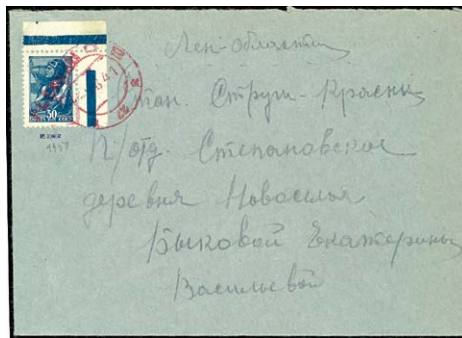 Лен-области
стан. Струги-Красны
П/отд. Степановское
деревня Новоселья
Быковой Екатерины
Васильевой
30